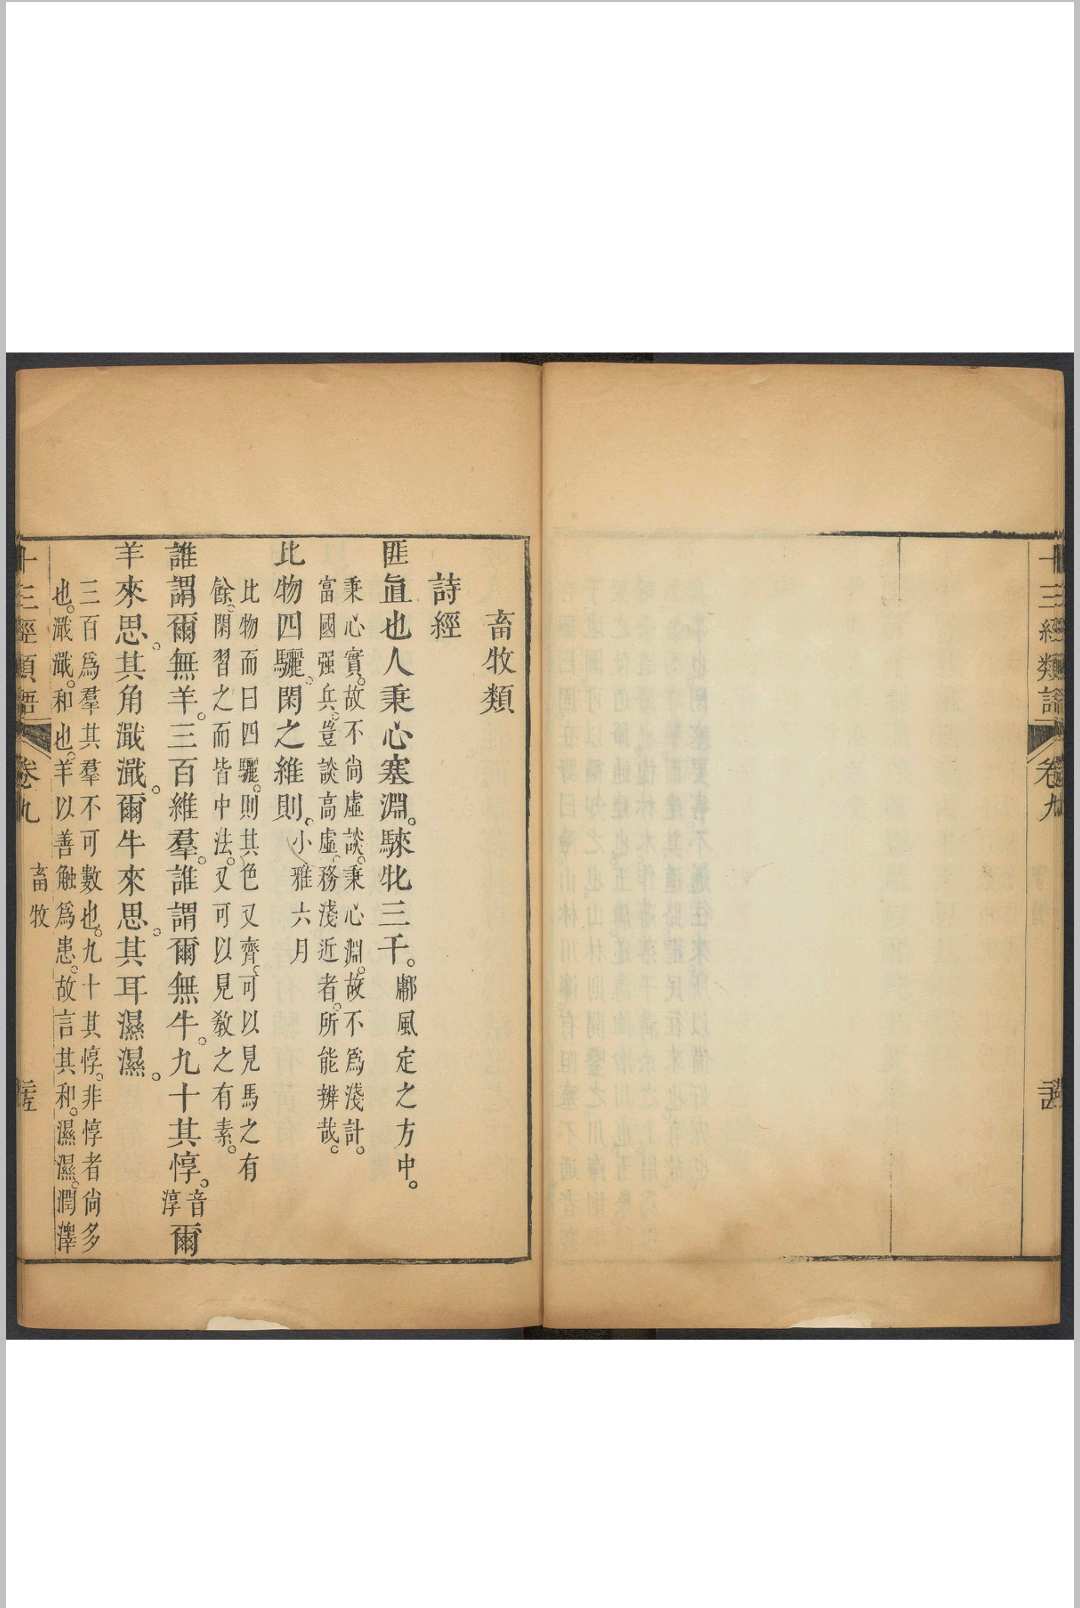 十三經類語
卷九
畜牧類
詩經
匪直也人秉心塞淵。騋牝三千。鄘風定之方中。
秉心實。故不尚虛談。秉心淵。故不爲淺計。
富國强兵。豈談高虛。務淺近者。所能辨哉。
比物四驪。閑之維則。小雅六月
比物而曰四驪。則其色又齊。可以見馬之有
餘。閑習之而皆中法。又可以見敎之有素。
誰謂爾無羊。三百維羣。誰謂爾無牛。九十其犉。音淳爾
羊來思。其角濈濈。爾牛來思。其耳濕濕。
三百爲羣其羣不可數也。九十其犉。非犉者尚多
也。濈濈。和也。羊以善觸爲患。故言其和。濕濕。潤澤
十三經類語
卷九
畜牧